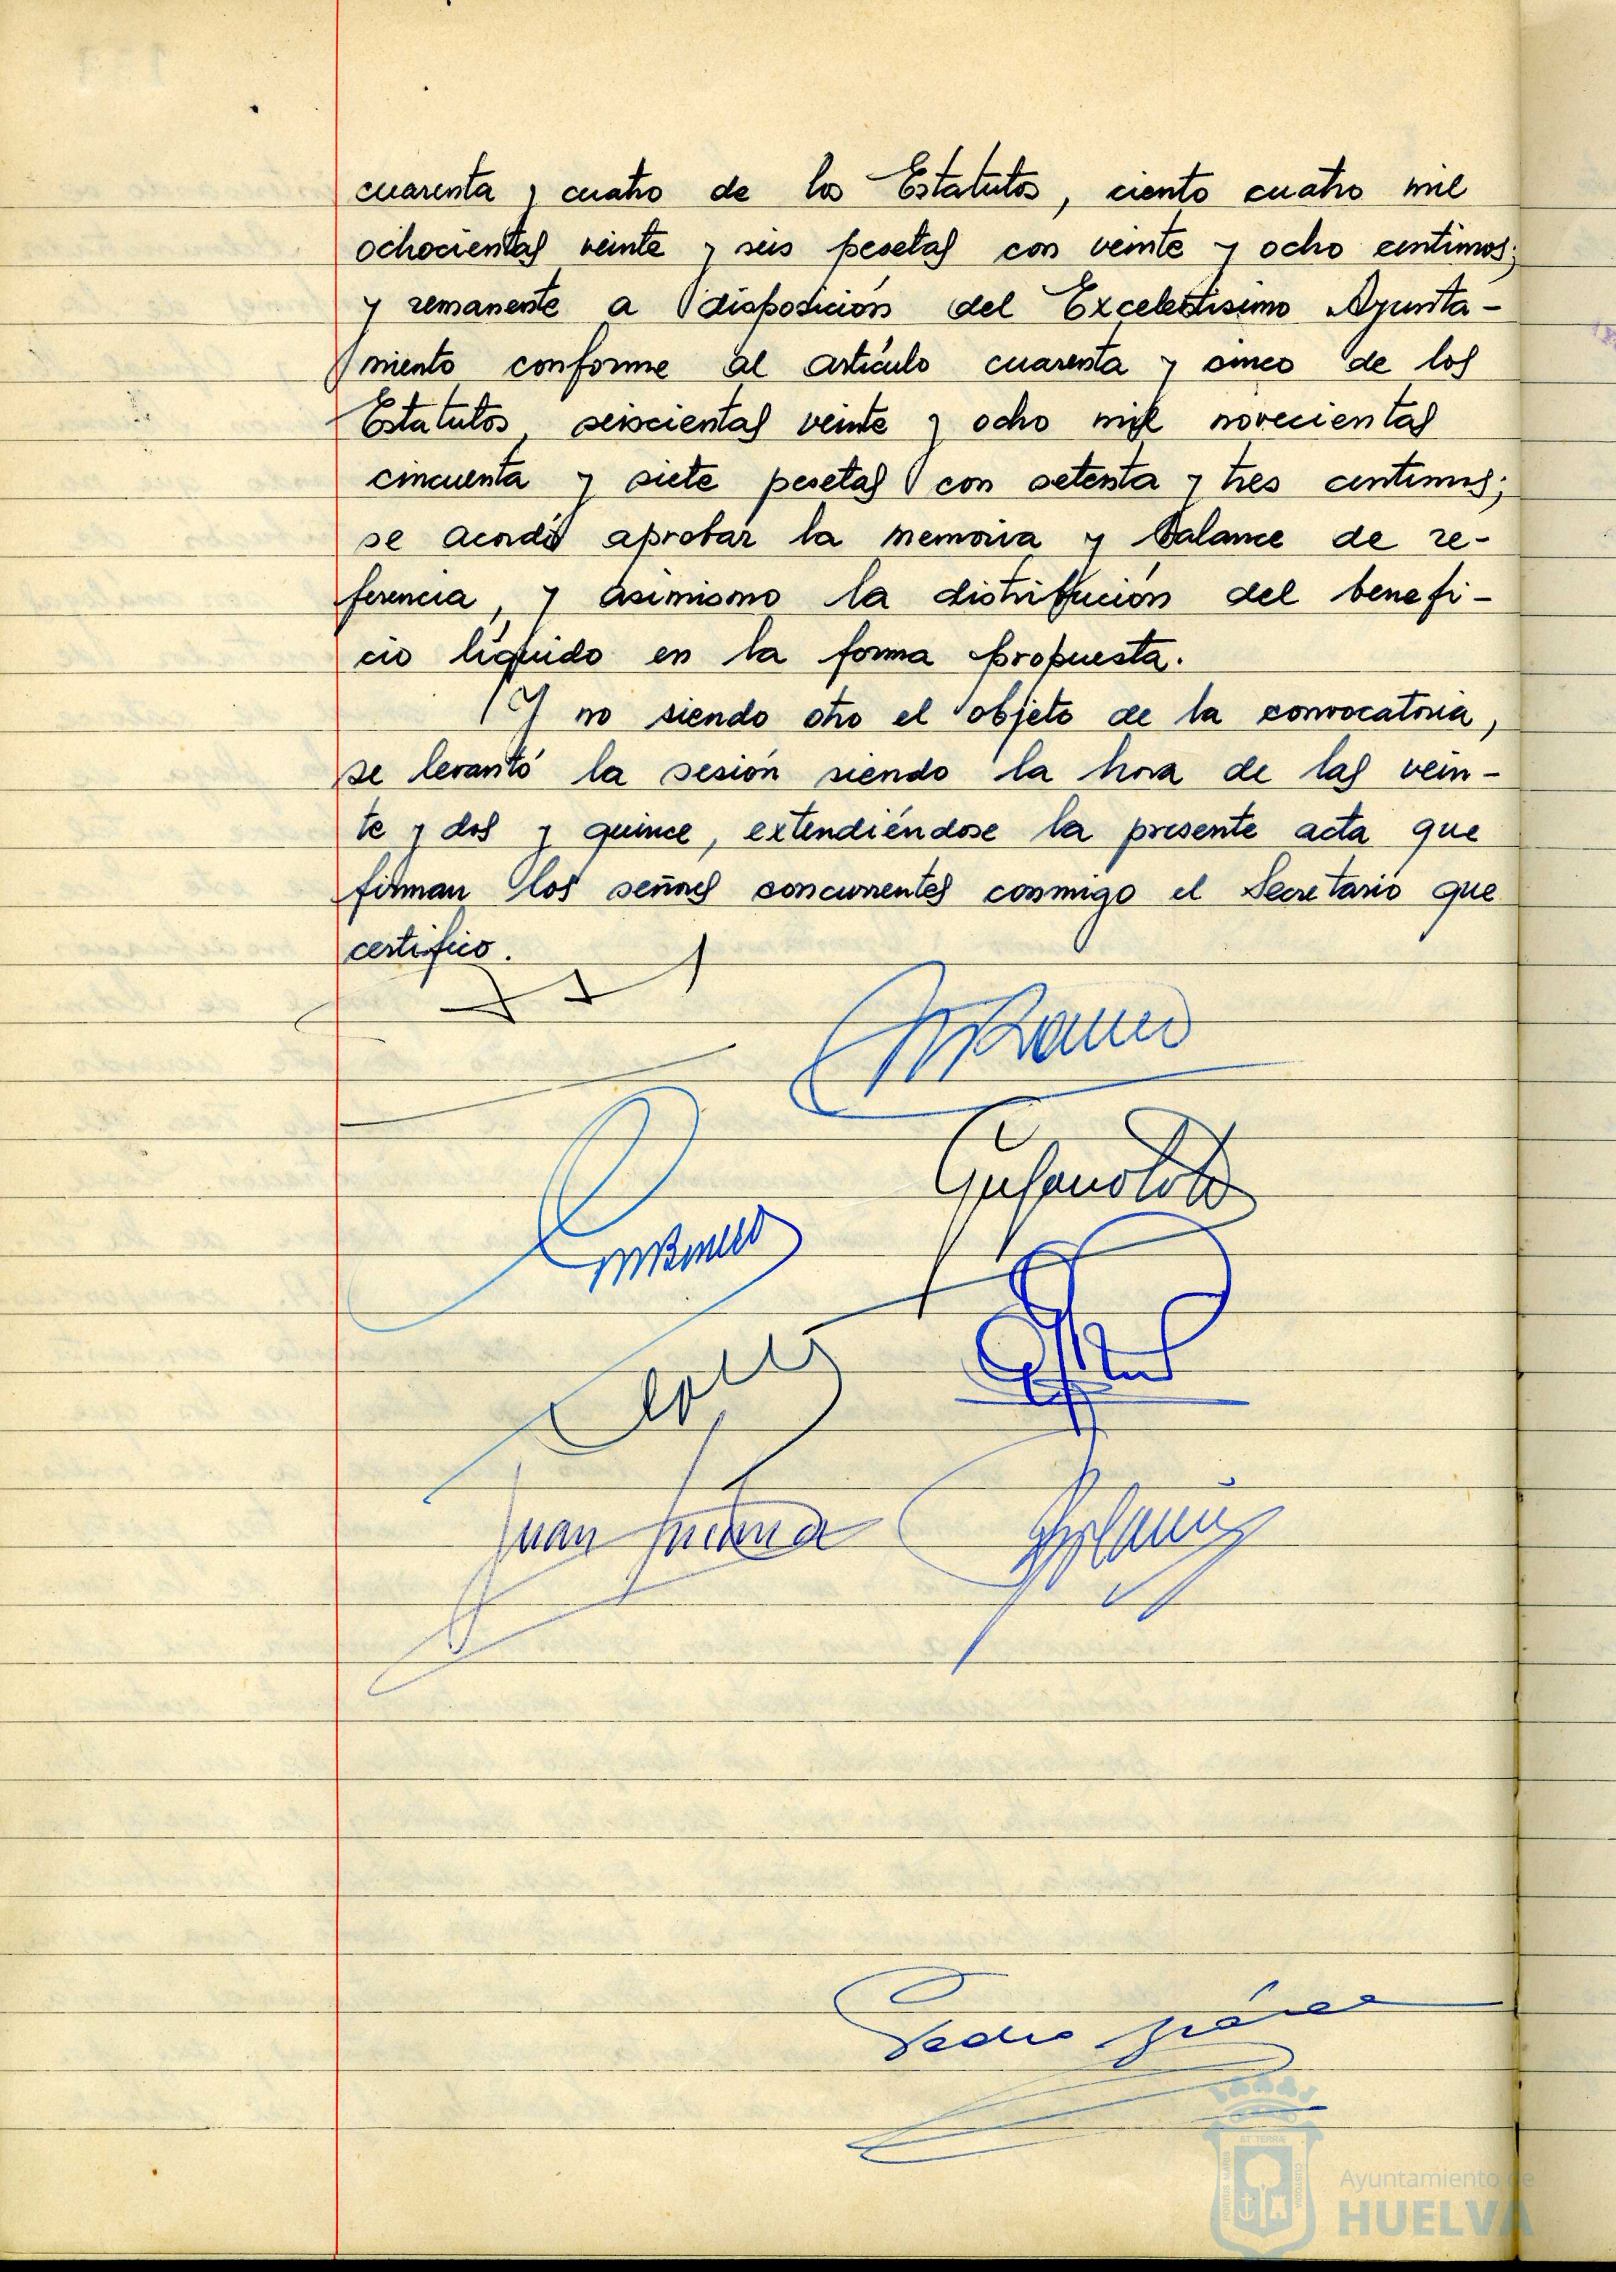 cuarenta y cuatro de los Estatutos, ciento cuatro mil
ochocientas veinte y seis pesetas con veinte y ocho centimos;
y remanente a disposición del Excelentisimo Ayunta-
miento conforme al artículo cuarenta y cinco de los
Estatutos, seiscientas veinte y ocho mil novecientas
cincuenta y siete pesetas con setenta y tres centimos;
se acordó aprobar la memoria y balance de re-
ferencia, y asimismo la distribución del benefi-
cio líquido en la forma propuesta.
Y no siendo otro el objeto de la convocatoria,
se levantó la sesión siendo la hora de las vein-
te y dos y quince, extendiéndose la presente acta que
firman los señores concurrentes conmigo el Secretario que
certifico.
Juan
Pedro
PORTUS MARIS ET TERRAE CUSTODIA
Ayuntamiento de
HUELVA